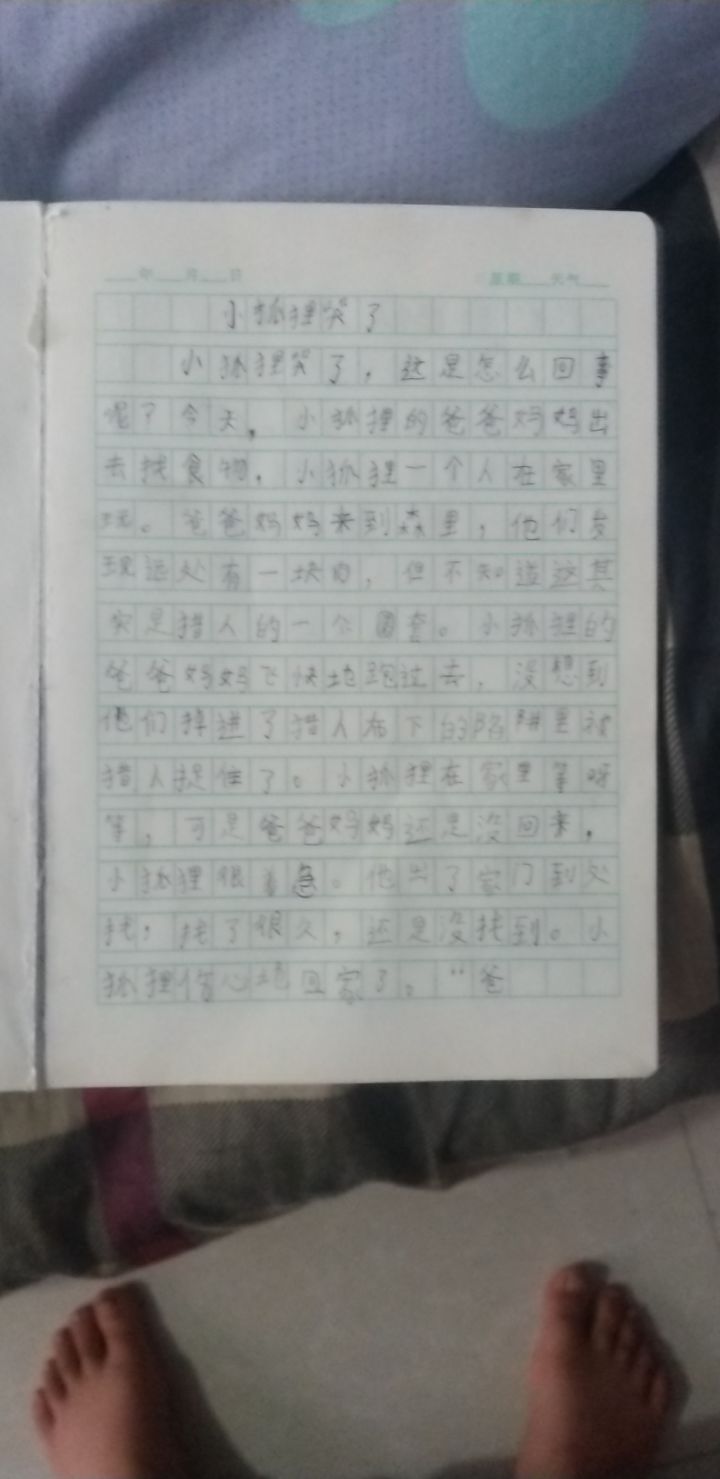 年 月 日 星期 天气
小狐狸哭了
小狐狸哭了，这是怎么回事
呢？今天，小狐狸的爸爸妈妈出
去找食物，小狐狸一个人在家里
玩。爸爸妈妈来到森里，他们发
现远处有一块肉，但不知道这其
实是猎人的一个圈套。小狐狸的
爸爸妈妈飞快地跑过去，没想到
他们掉进了猎人布下的陷阱里被
猎人捉住了。小狐狸在家里等呀
等，可是爸爸妈妈还是没回来，
小狐狸很着急。他出了家门到处
找，找了很久，还是没找到。小
狐狸伤心地回家了。“爸